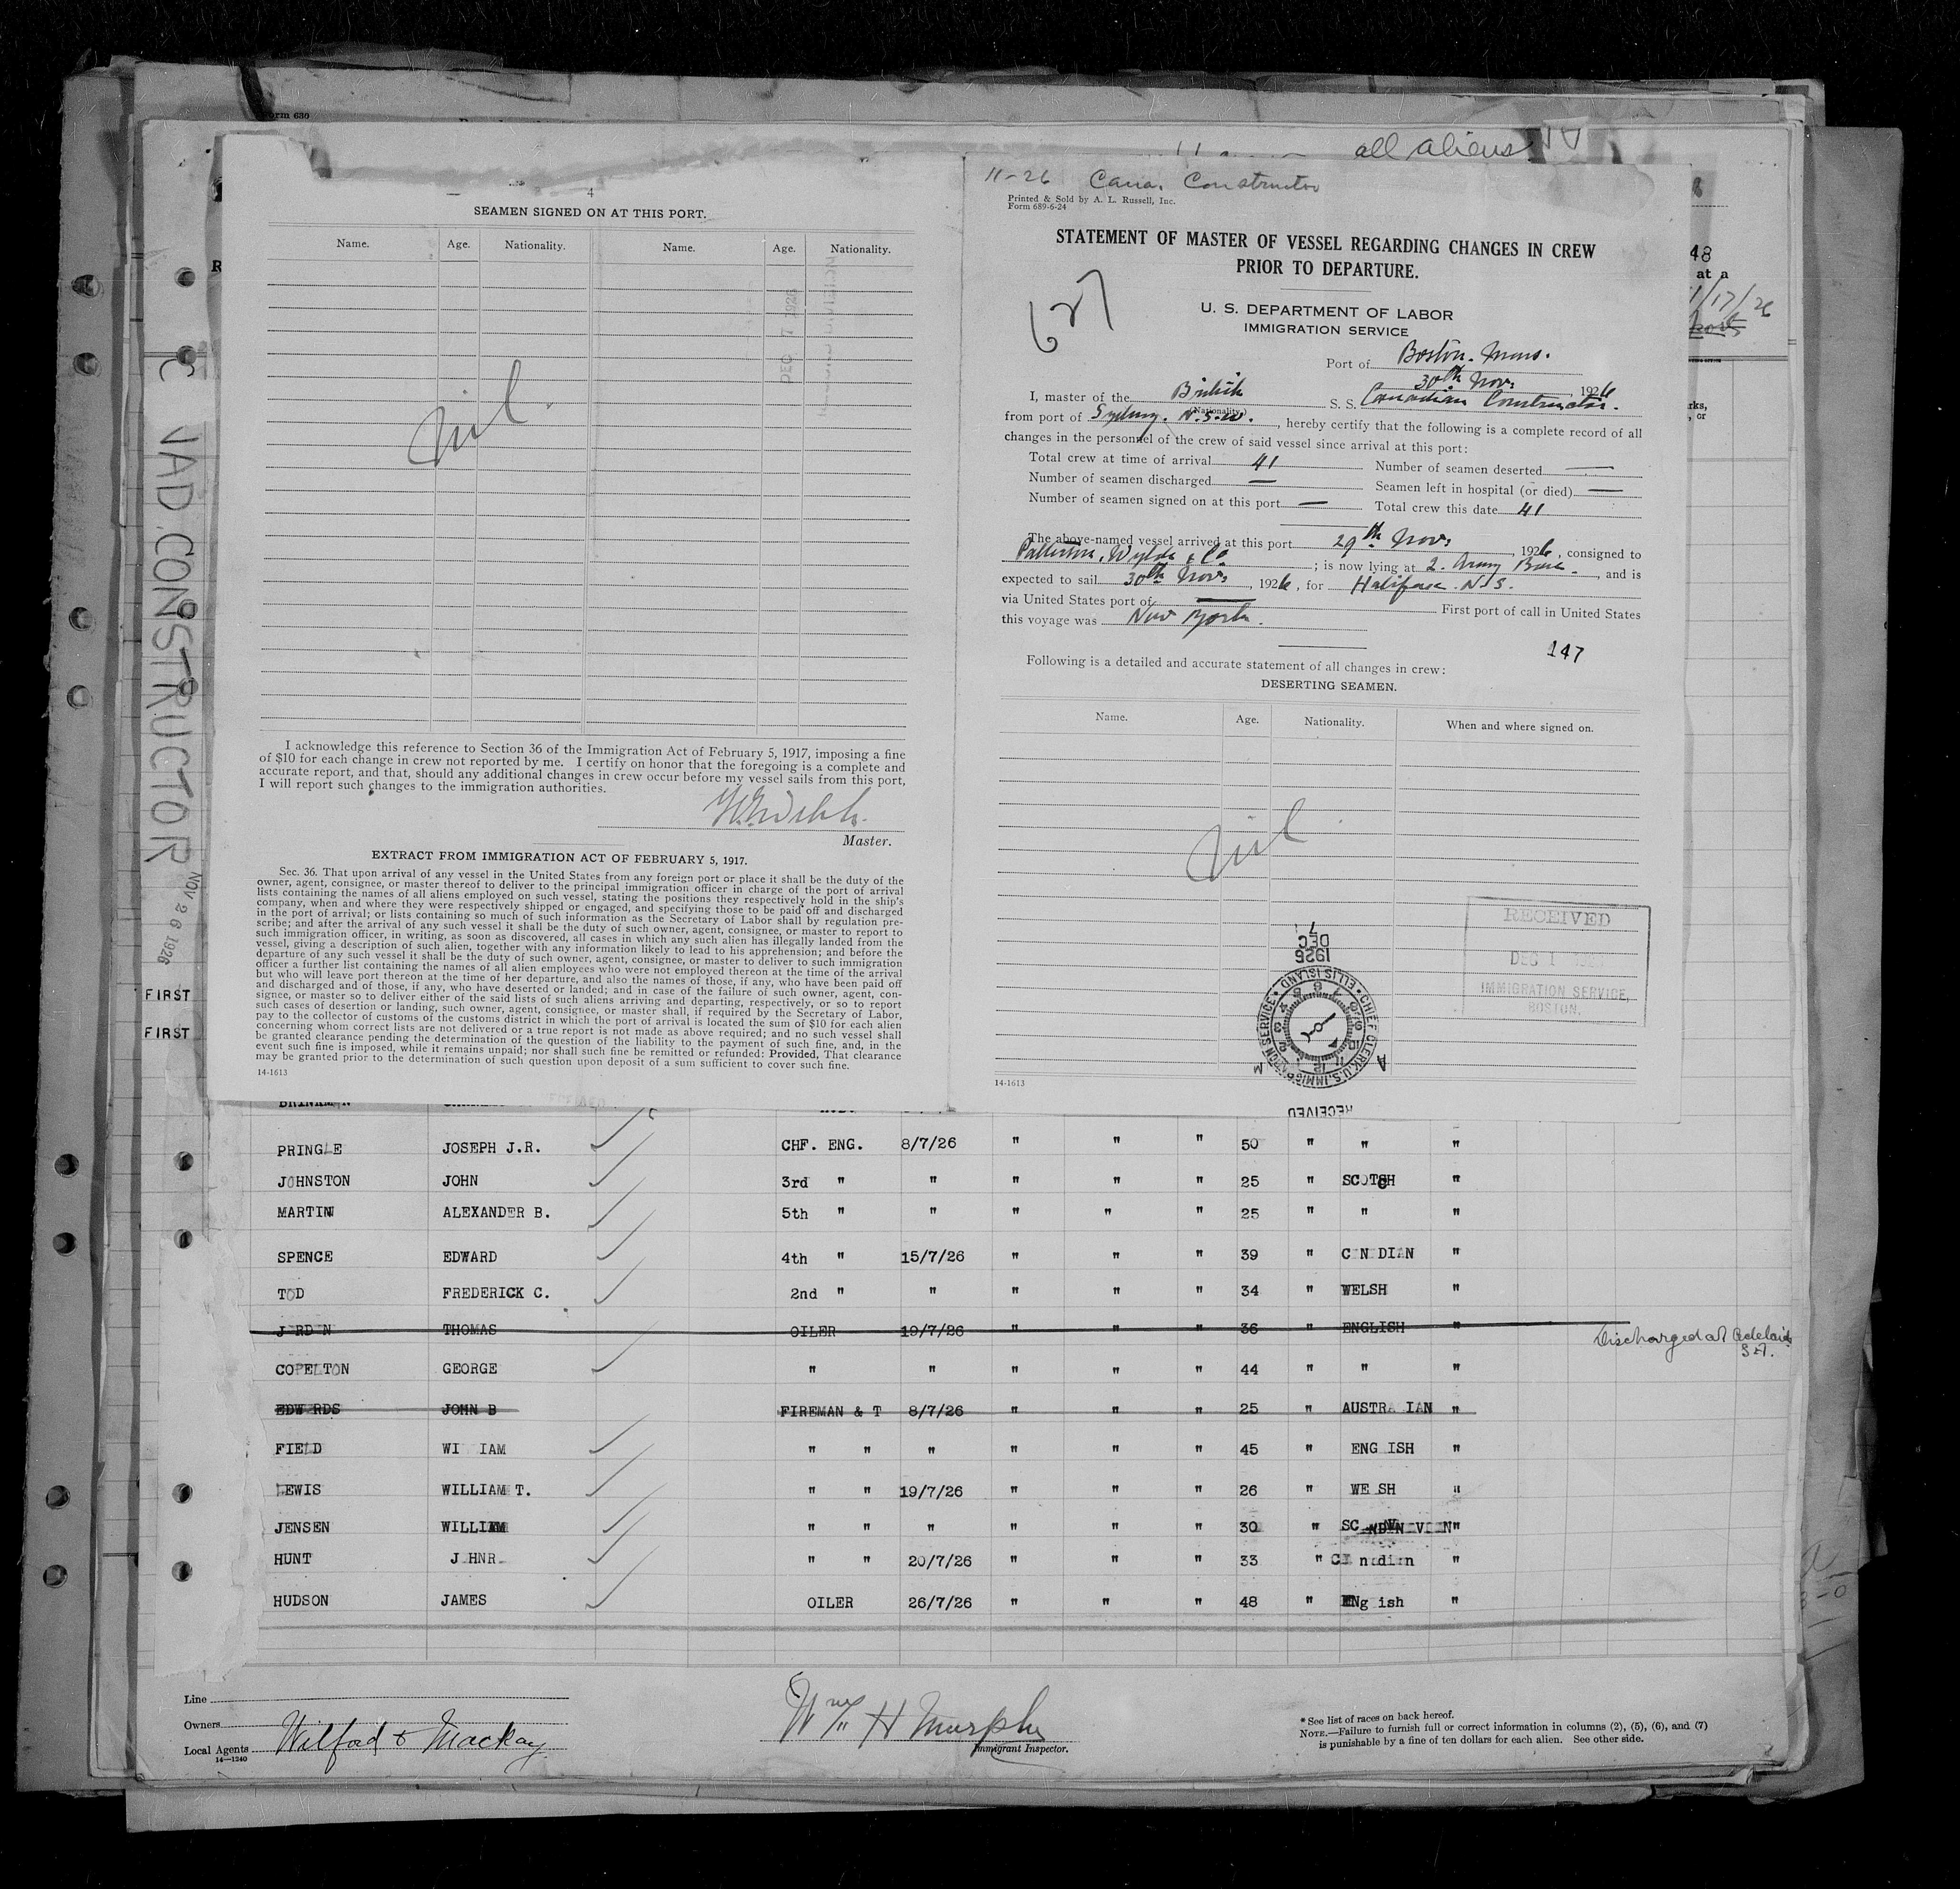 Form 630
all aliens
4
SEAMEN SIGNED ON AT THIS PORT.
Name. Age. Nationality. Name. Age. Nationality.
DEC 7 1926
nil.
I acknowledge this reference to Section 36 of the Immigration Act of February 5, 1917, imposing a fine
of $10 for each change in crew not reported by me. I certify on honor that the foregoing is a complete and
accurate report, and that, should any additional changes in crew occur before my vessel sails from this port,
I will report such changes to the immigration authorities.
Master.
EXTRACT FROM IMMIGRATION ACT OF FEBRUARY 5, 1917.
Sec. 36. That upon arrival of any vessel in the United States from any foreign port or place it shall be the duty of the
owner, agent, consignee, or master thereof to deliver to the principal immigration officer in charge of the port of arrival
lists containing the names of all aliens employed on such vessel, stating the positions they respectively hold in the ship's
company, when and where they were respectively shipped or engaged, and specifying those to be paid off and discharged
in the port of arrival; or lists containing so much of such information as the Secretary of Labor shall by regulation pre-
scribe; and after the arrival of any such vessel it shall be the duty of such owner, agent, consignee, or master to report to
such immigration officer, in writing, as soon as discovered, all cases in which any such alien has illegally landed from the
vessel, giving a description of such alien, together with any information likely to lead to his apprehension; and before the
departure of any such vessel it shall be the duty of such owner, agent, consignee, or master to deliver to such immigration
officer a further list containing the names of all alien employees who were not employed thereon at the time of the arrival
but who will leave port thereon at the time of her departure, and also the names of those, if any, who have been paid off
and discharged and of those, if any, who have deserted or landed; and in case of the failure of such owner, agent, con-
signee, or master so to deliver either of the said lists of such aliens arriving and departing, respectively, or so to report
such cases of desertion or landing, such owner, agent, consignee, or master shall, if required by the Secretary of Labor,
pay to the collector of customs of the customs district in which the port of arrival is located the sum of $10 for each alien
concerning whom correct lists are not delivered or a true report is not made as above required; and no such vessel shall
be granted clearance pending the determination of the question of the liability to the payment of such fine, and, in the
event such fine is imposed, while it remains unpaid; nor shall such fine be remitted or refunded: Provided, That clearance
may be granted prior to the determination of such question upon deposit of a sum sufficient to cover such fine.
14-1613
11-26 Cana. Constructor
Printed & Sold by A. L. Russell, Inc.
Form 689-6-24
STATEMENT OF MASTER OF VESSEL REGARDING CHANGES IN CREW
PRIOR TO DEPARTURE.
U. S. DEPARTMENT OF LABOR
IMMIGRATION SERVICE
Port of Boston. Mass.
30th Nov. 1926
I, master of the British S. S. Canadian Constructor.
(Nationality.)
from port of Sydney. N.S.W., hereby certify that the following is a complete record of all
changes in the personnel of the crew of said vessel since arrival at this port:
Total crew at time of arrival 41 Number of seamen deserted —
Number of seamen discharged — Seamen left in hospital (or died) —
Number of seamen signed on at this port — Total crew this date 41
The above-named vessel arrived at this port 29th Nov. 1926, consigned to
Patterson, Wylde & Co ; is now lying at 2. Army Base., and is
expected to sail 30th Nov. , 1926, for Halifax. N.S.
via United States port of — First port of call in United States
this voyage was New York.
147
Following is a detailed and accurate statement of all changes in crew:
DESERTING SEAMEN.
Name. Age. Nationality. When and where signed on.
nil
RECEIVED
DEC 1
IMMIGRATION SERVICE,
BOSTON.
1926
DEC
7
CHIEF CLERK, U.S. IMMIGRATION SERVICE • ELLIS ISLAND •
A M
RECEIVED
14-1613
48
at a
11/17/26
rks,
or
CANAD. CONSTRUCTOR
NOV 26 1926
FIRST
FIRST
PRINGLE JOSEPH J.R. CHF. ENG. 8/7/26 " " " 50 " " "
JOHNSTON JOHN 3rd " " " " " 25 " SCOTCH "
MARTIN ALEXANDER B. 5th " " " " " 25 " " "
SPENCE EDWARD 4th " 15/7/26 " " " 39 " C N DIAN "
TOD FREDERICK C. 2nd " " " " " 34 " WELSH "
J RD N THOMAS OILER 19/7/26 " " " 36 " ENGLISH " Discharged at Adelaide S.A.
COPELTON GEORGE " " " " " 44 " " "
EDW RDS JOHN B FIREMAN & T 8/7/26 " " " 25 " AUSTRA IAN "
FIELD WI IAM " " " " " " 45 " ENG ISH "
LEWIS WILLIAM T. " " 19/7/26 " " " 26 " WE SH "
JENSEN WILLIAM " " " " " " 30 " SC NDIN VI N "
HUNT J HNR " " 20/7/26 " " " 33 " C n dian "
HUDSON JAMES OILER 26/7/26 " " " 48 " ENg ish "
Line
Owners
Local Agents Wilford & Mackay
14—1240
Wm H Murphy
Immigrant Inspector.
* See list of races on back hereof.
NOTE.—Failure to furnish full or correct information in columns (2), (5), (6), and (7)
is punishable by a fine of ten dollars for each alien. See other side.